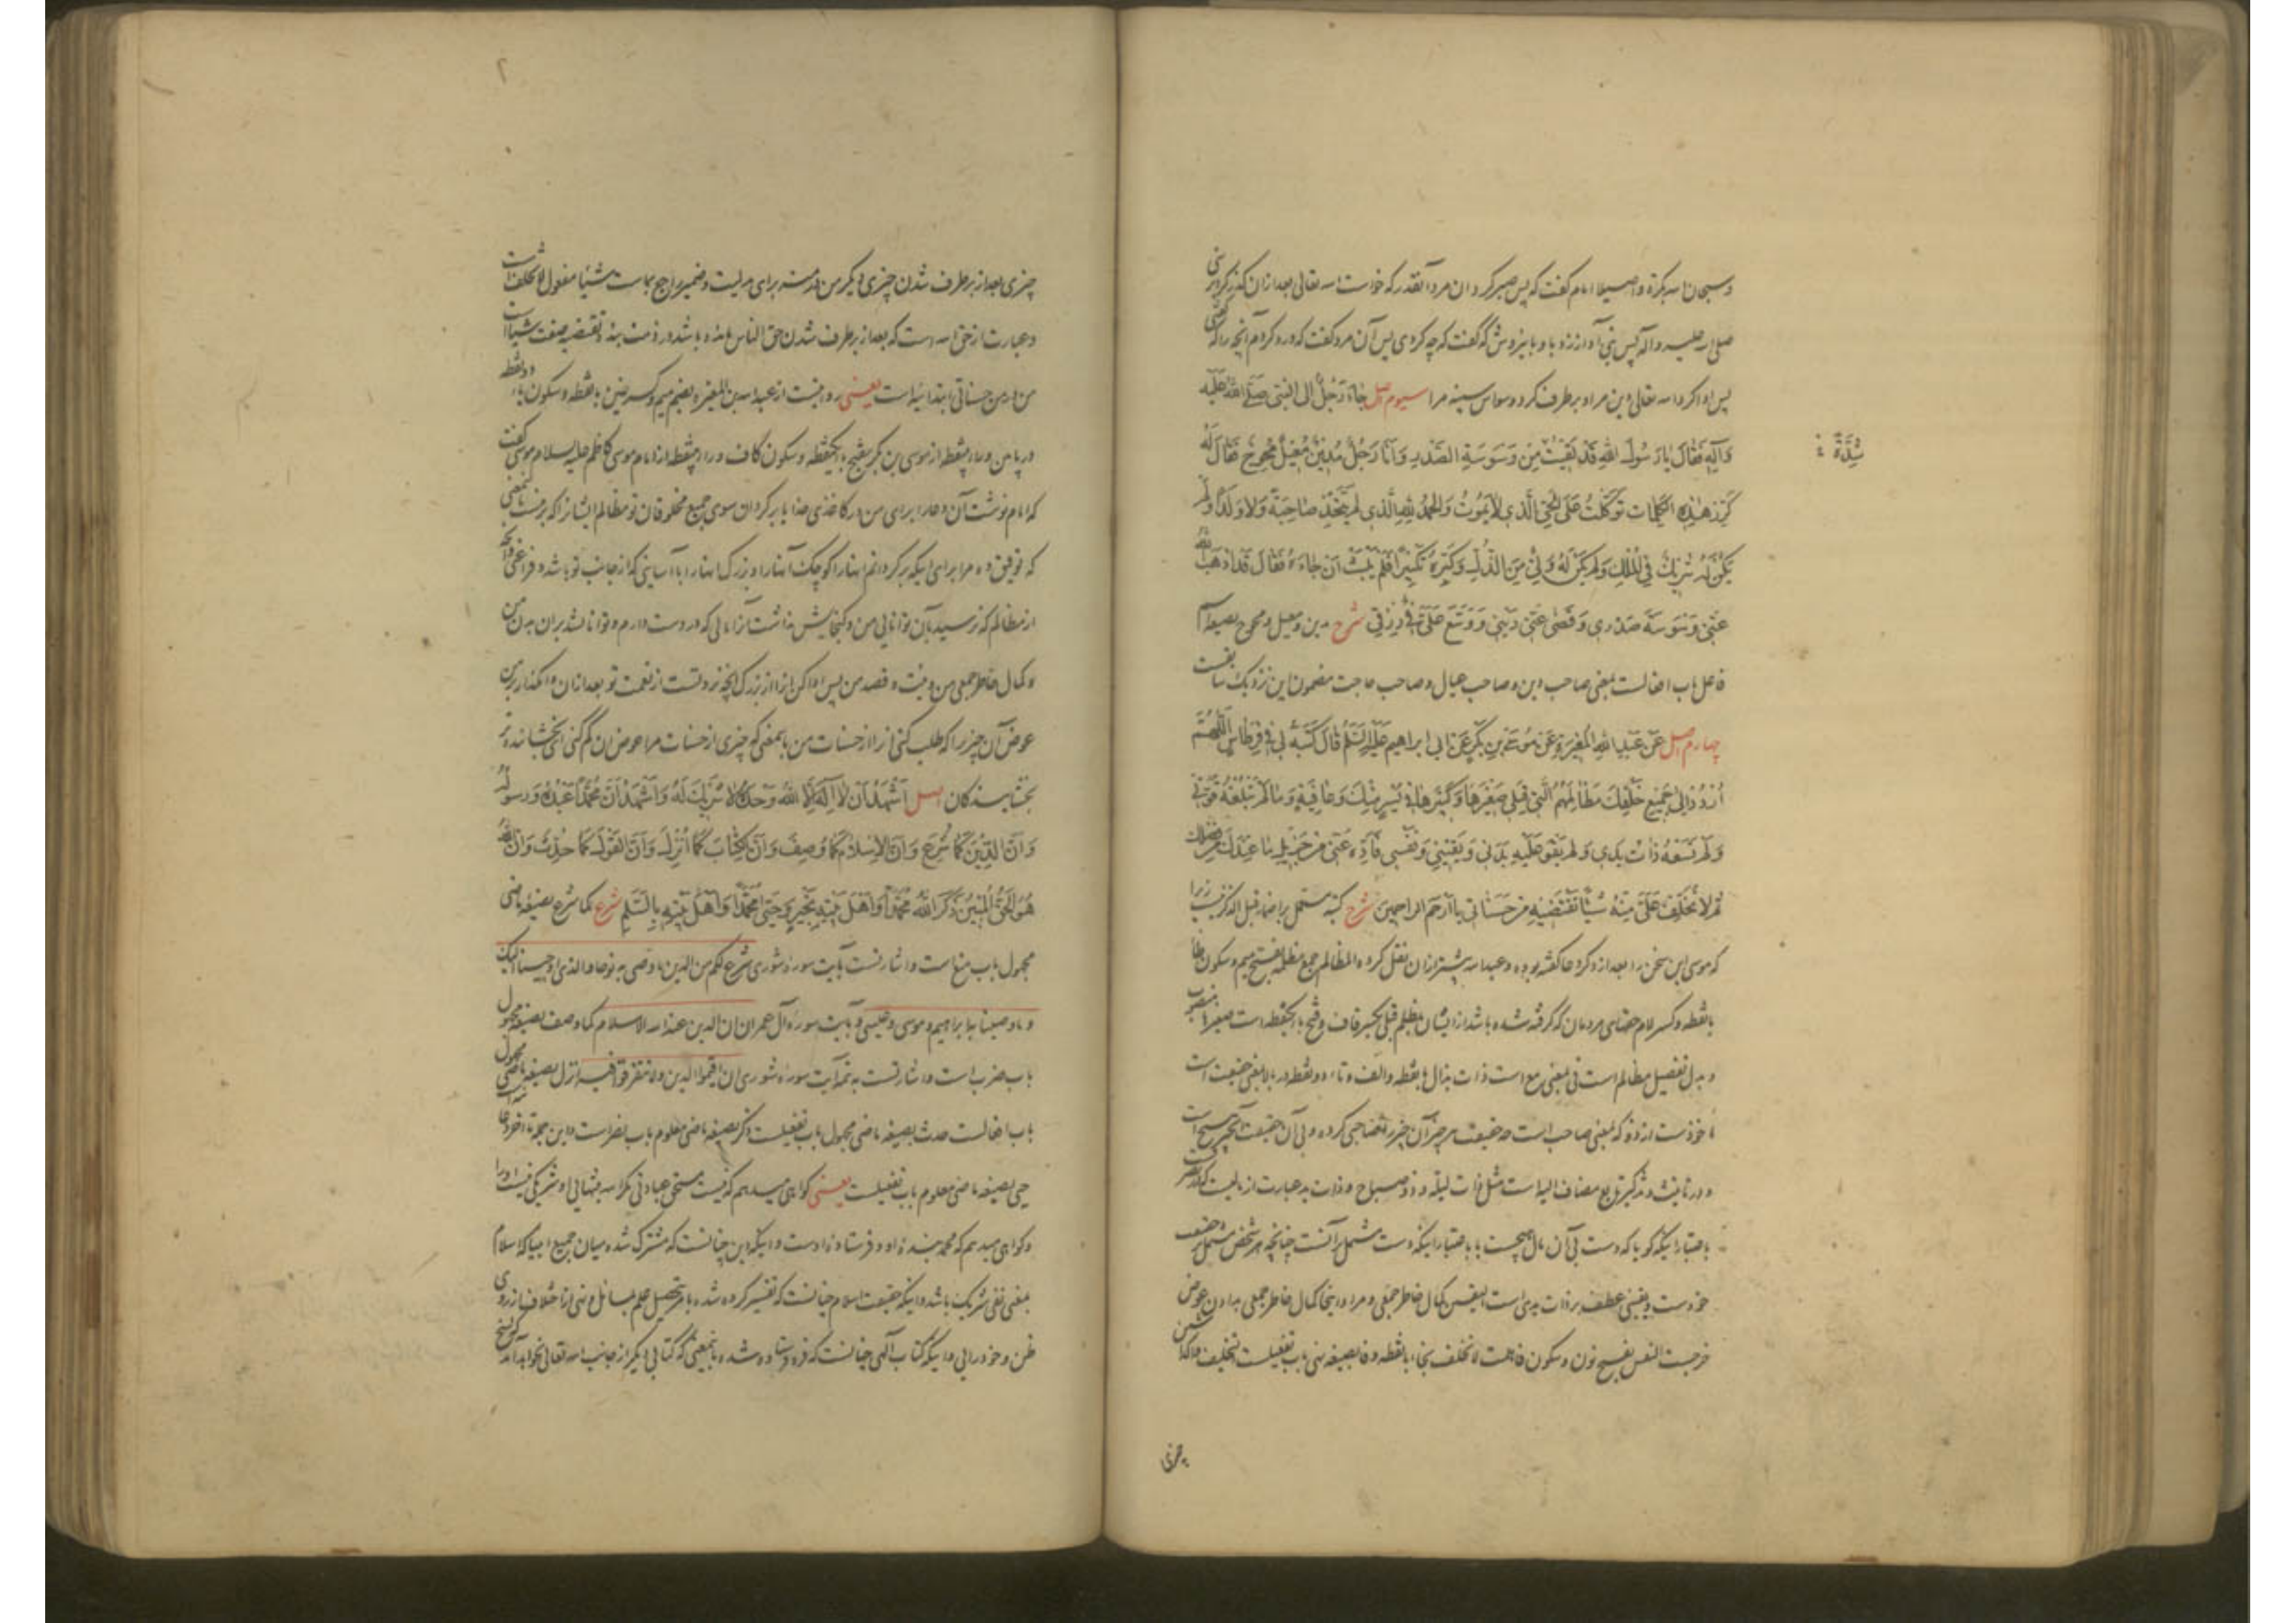 وسبحان الله بکرة واصیلا امام گفت که پس صبر کرد آن مرد آنقدر که خواست الله تعالی بعد از آن گذر کرد بر نبی
صلی الله علیه وآله پس نبی آواز زد با او پس گفت که چه کردی پس آن مرد گفت که ورد کردم آنچه را که گفتی
پس ادا کرد الله تعالی دین مرا و برطرف کرد وسواس سینه مرا سیوم اصل جَاءَ رَجُلٌ اِلَی النَّبِیِّ صَلَّی اللهُ عَلَیْهِ
وَآلِهِ فَقَالَ یَا رَسُولَ اللهِ قَدْ لَقِیْتُ مِنْ وَسْوَسَةِ الصَّدْرِ وَاَنَا رَجُلٌ مُدِیْنٌ مُعِیْلٌ مُحْوِجٌ فَقَالَ لَهُ
شِدَّةً
کَرِّرْ هٰذِهِ الْکَلِمَاتِ تَوَکَّلْتُ عَلَی الْحَیِّ الَّذِی لَا یَمُوتُ وَالْحَمْدُ لِلّٰهِ الَّذِی لَمْ یَتَّخِذْ صَاحِبَةً وَلَا وَلَدًا وَلَمْ
یَکُنْ لَهُ شَرِیْکٌ فِی الْمُلْکِ وَلَمْ یَکُنْ لَهُ وَلِیٌّ مِنَ الذُّلِّ وَکَبِّرْهُ تَکْبِیْرًا فَلَمْ یَلْبَثْ اَنْ جَاءَهُ فَقَالَ قَدْ اَذْهَبَ اللهُ
عَنِّی وَسْوَسَةَ صَدْرِی وَقَضٰی عَنِّی دَیْنِی وَوَسَّعَ عَلَیَّ فِی رِزْقِی شرح مدین ومعیل ومحوج بصیغه اسم
فاعل باب افعالست بمعنی صاحب دین وصاحب عیال وصاحب حاجت مضمون این نزدیک بسابقست
چهارم اصل عَنْ عَبْدِ اللهِ الْمُغِیْرَةِ عَنْ مُوسَی بْنِ بَکْرٍ عَنْ اَبِی اِبْرَاهِیْمَ عَلَیْهِ السَّلَمُ قَالَ کَتَبَهُ لِی فِی قِرْطَاسٍ اَللّٰهُمَّ
اُرْدُدْ اِلٰی جَمِیْعِ خَلْقِکَ مَظَالِمَهُمُ الَّتِی قِبَلِی صَغِیْرَهَا وَکَبِیْرَهَا فِی یُسْرٍ مِنْکَ وَعَافِیَةٍ وَمَا لَمْ تَبْلُغْهُ قُوَّتِی
وَلَمْ تَسَعْهُ ذَاتُ یَدِی وَلَمْ یَقْوَ عَلَیْهِ بَدَنِی وَیَقِیْنِی وَنَفْسِی فَاَدِّهِ عَنِّی مِنْ جَزِیْلِ مَا عِنْدَکَ مِنْ فَضْلِکَ
ثُمَّ لَا تُخَلِّفْ عَلَیَّ مِنْهُ شَیْئًا تَقْضِیْهِ مِنْ حَسَنَاتِی یَا اَرْحَمَ الرَّاحِمِیْنَ شرح کتبه مشتمل بر اضمار قبل الذکر نیست زیرا
که موسی این سخن را بعد از ذکر دعا گفته بوده وعبد الله پیشتر از آن نقل کرده المظالم جمع مظلمه بفتح میم وسکون ظا
بانقطه وکسر لام حقهای مردمان که گرفته شده باشد از ایشان بظلم قبل بکسر قاف وفتح با یکنقطه است صغیرها منصوب
وبدل تفصیل مظالم است فی بمعنی مع است ذات بذال بانقطه والف وتاء دو نقطه در بالا بمعنی حقیقت است
ماخوذست از ذو که بمعنی صاحب است چه حقیقت هر چیز آن چیز را صاحبی کرده وبی آن حقیقت آن چیز هیچ است
ودر تانیث وتذکیر تابع مضاف الیه است مثل ذات لیلة وذو صباح وذات ید عبارت از مالیست که در تصرف
باعتبار اینکه گویا که دست بی آن مال هیچست یا باعتبار اینکه دست مشتمل بر آنست چنانچه هر شخص مشتمل بر حقیقت
خودست ویقینی عطف بر ذات یدی است الیقین کمال خاطر جمعی ومراد اینجا کمال خاطر جمعی بدادن عوض
خرجست النفس بفتح نون وسکون فا لا تخلف بخاء بانقطه وفا بصیغه نهی باب تفعیلست التخلیف واگذاشتن
چیزی
چیزی بعد از برطرف شدن چیزی دیگر من در منه برای بدلیت وضمیر راجع بماست شیئا مفعول لا تخلف است
وعبارت از حق الله است که بعد از برطرف شدن حق الناس مانده باشد در ذمت بنده تقضیه صفت شیئا است
من در من حسناتی ابتدائیه است یعنی روایتست از عبد الله بن المغیره بضم میم وکسر غین بانقطه وسکون یاء دو نقطه
در پایین وراء بینقطه از موسی بن بکر بفتح باء یکنقطه وسکون کاف وراء بینقطه از امام موسی کاظم علیه السلام موسی گفت
که امام نوشت آن دعا را برای من در کاغذی خدایا برگردان سوی جمیع مخلوقان تو مظالم ایشان را که بر منست بمعنی
که توفیق ده مرا برای اینکه برگردانم اینها را کوچک آنها را وبزرگ اینها را با آسایشی که از جانب تو باشد وفراغی وآنچه
از مظالم که نرسید بآن توانایی من وگنجایش نداشت آنرا مالی که در دست دارم وتوانا نشد بر آن بدن من
وکمال خاطر جمعی من ونیت وقصد من پس ادا کن آنرا از بزرگ آنچه نزد تست از نعمت تو بعد از آن وامگذار بر من
عوض آن چیز را که طلب کنی آنرا از حسنات من باینمعنی که چیزی از حسنات مرا عوض آن کم کنی ای بخشاینده تر
بخشایندگان اصل اَشْهَدُ اَنْ لَا اِلٰهَ اِلَّا اللهُ وَحْدَهُ لَا شَرِیْکَ لَهُ وَاَشْهَدُ اَنَّ مُحَمَّدًا عَبْدُهُ وَرَسُولُهُ
وَاَنَّ الدِّیْنَ کَمَا شُرِعَ وَاَنَّ الْاِسْلَامَ کَمَا وُصِفَ وَاَنَّ الْکِتَابَ کَمَا اُنْزِلَ وَاَنَّ الْقَوْلَ کَمَا حُدِّثَ وَاَنَّ اللهَ
هُوَ الْحَقُّ الْمُبِیْنُ ذَکَرَ اللهُ مُحَمَّدًا وَاَهْلَ بَیْتِهِ بِخَیْرٍ وَحَیّٰی مُحَمَّدًا وَاَهْلَ بَیْتِهِ بِالسَّلَمِ شرح کما شرع بصیغه ماضی
مجهول باب منع است واشارتست بآیت سوره شوری شرع لکم من الدین ما وصی به نوحا والذی اوحینا الیک
وما وصینا به ابراهیم وموسی وعیسی وبآیت سوره آل عمران ان الدین عند الله الاسلام کما وصف بصیغه مجهول
باب ضرب است واشارتست به تتمه آیت سوره شوری ان اقیموا الدین ولا تتفرقوا فیه انزل بصیغه ماضی مجهول
باب افعالست حدث بصیغه ماضی مجهول باب تفعیلست ذکر بصیغه ماضی معلوم باب نصر است واین جمله تا آخر دعا
حیی بصیغه ماضی معلوم باب تفعیلست یعنی گواهی میدهم که نیست مستحق عبادتی مگر الله بتنهایی او شریکی نیست او را
وگواهی میدهم که محمد بنده او وفرستاده اوست واینکه دین چنانست که مشترک شده میان جمیع انبیا که اسلام
بمعنی نفی شریک باشد واینکه حقیقت اسلام چنانست که تفسیر کرده شده بامر بتحصیل علم بمسائل ونهی از اختلاف از روی
ظن وخود رایی واینکه کتاب آلهی چنانست که فرو فرستاده شده باینمعنی که کتابی دیگر از جانب الله تعالی نخواهد آمد که نسخ